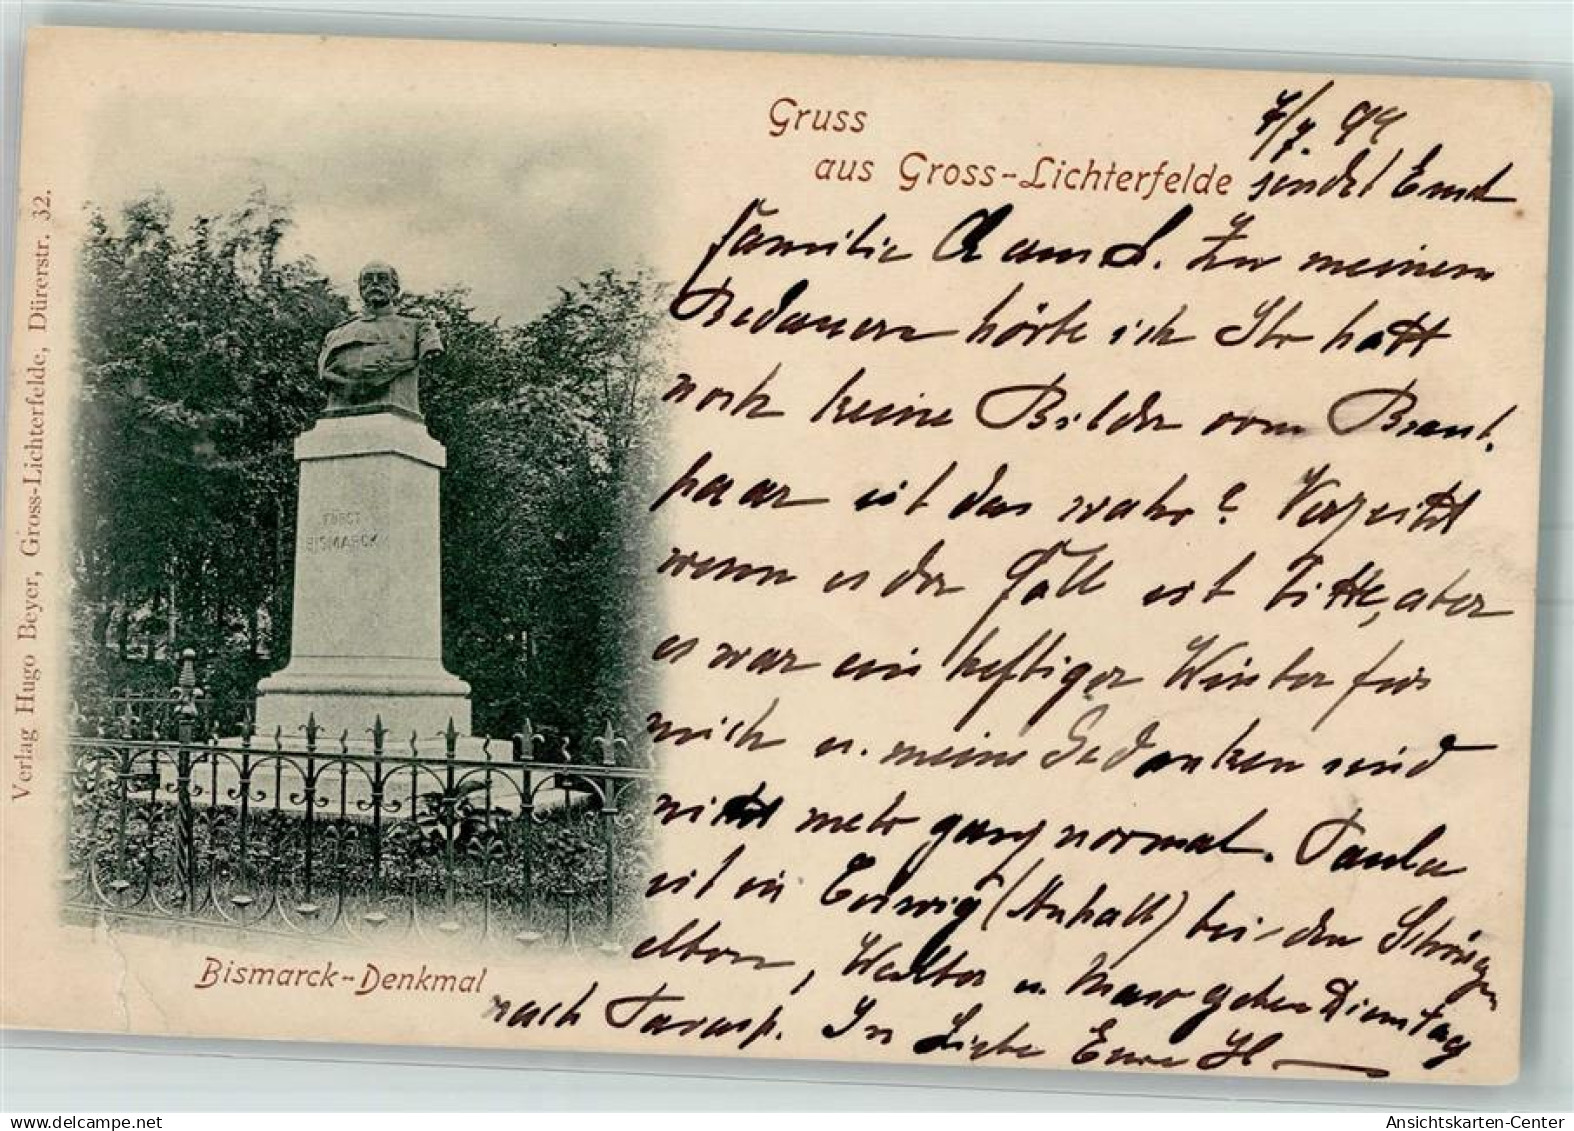 Gruss
aus Gross-Lichterfelde
7/7. 99
sendet Euch
Familie Adam S. Zu meinem
Bedauern hörte ich Ihr hattet
noch keine Bilder vom Braut-
paar ist das wahr? Verzeiht
wenn es der Fall ist bitte, aber
es war ein heftiger Winter für
mich u. meine Gedanken sind
nicht mehr ganz normal. Paula
ist in Coswig (Anhalt) bei den Schwieger
eltern, Walter u. gehen Dienstag
nach Tarasp. In Liebe Eure
Bismarck-Denkmal
FÜRST
BISMARCK
Verlag Hugo Beyer, Gross-Lichterfelde, Dürerstr. 32.
oldthing.de
Ansichtskarten-Center